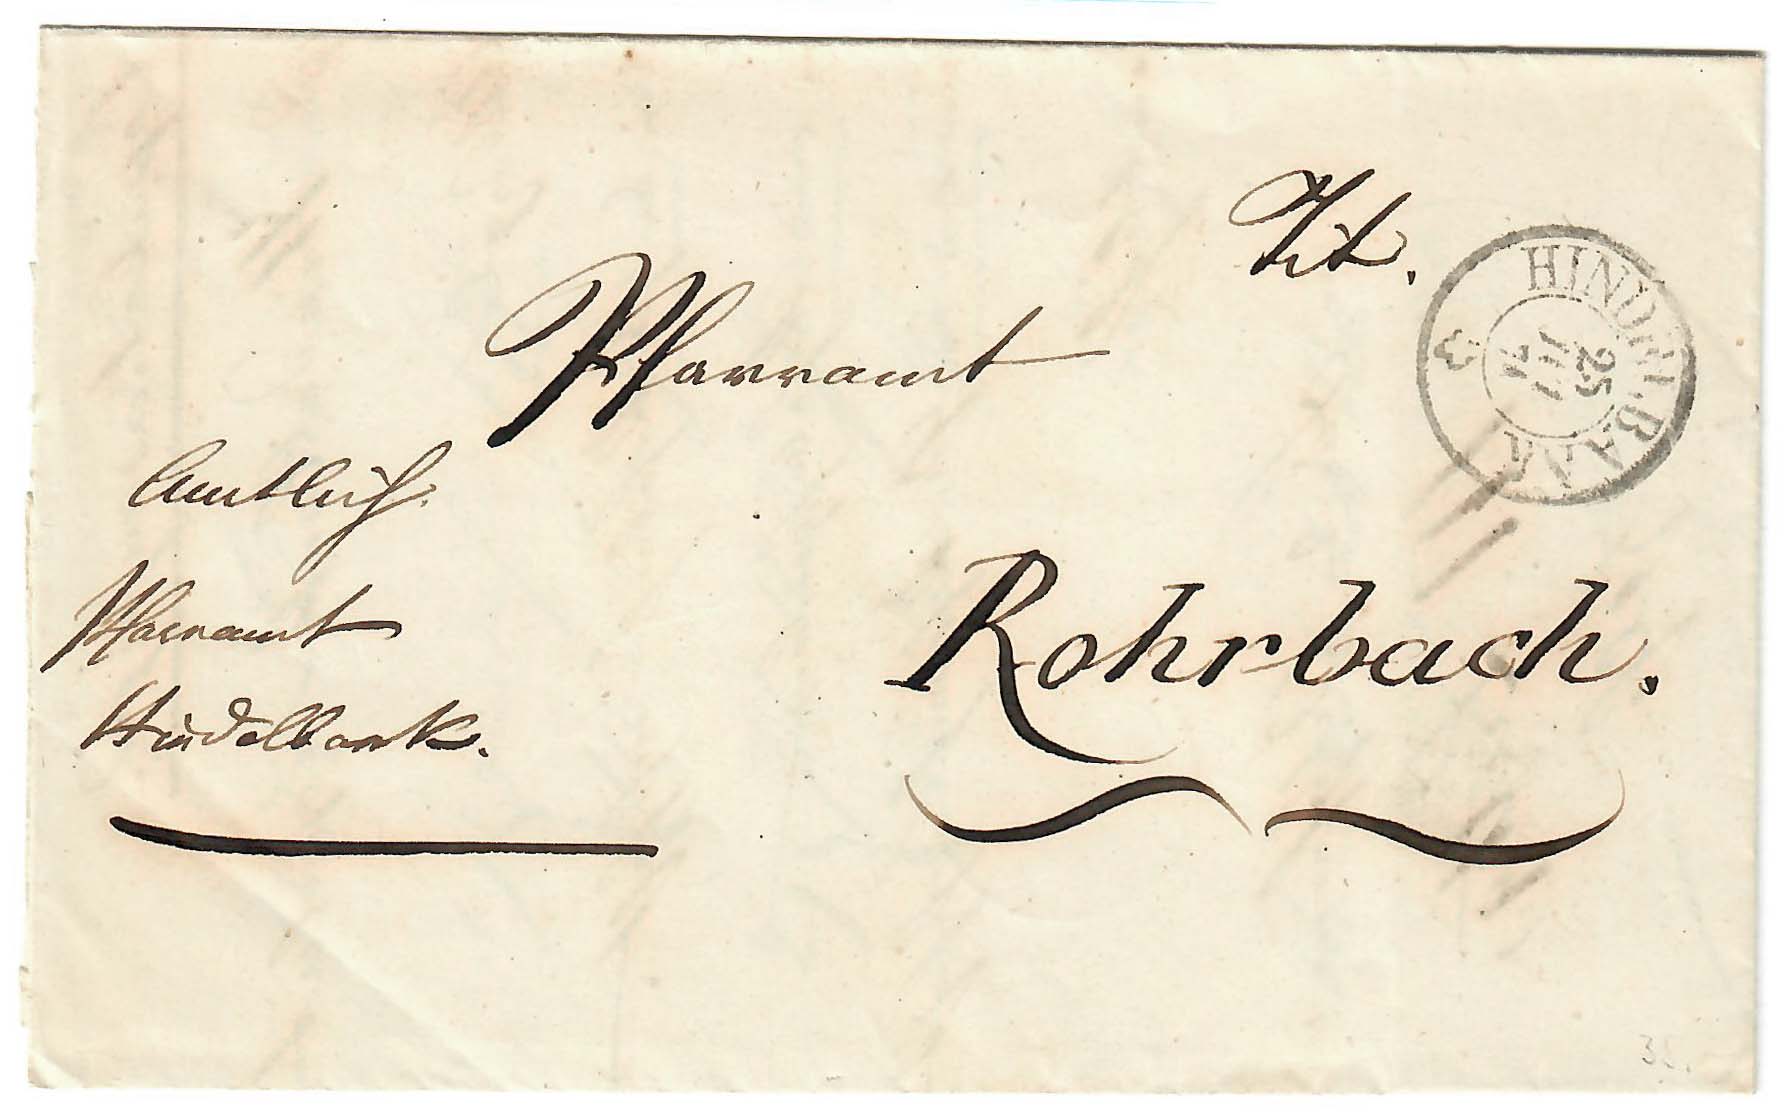 Tit.
Pfarramt
Amtlich.
Pfarramt
Hindelbank.
Rohrbach.
HINDELBANK
25
III
71
35.